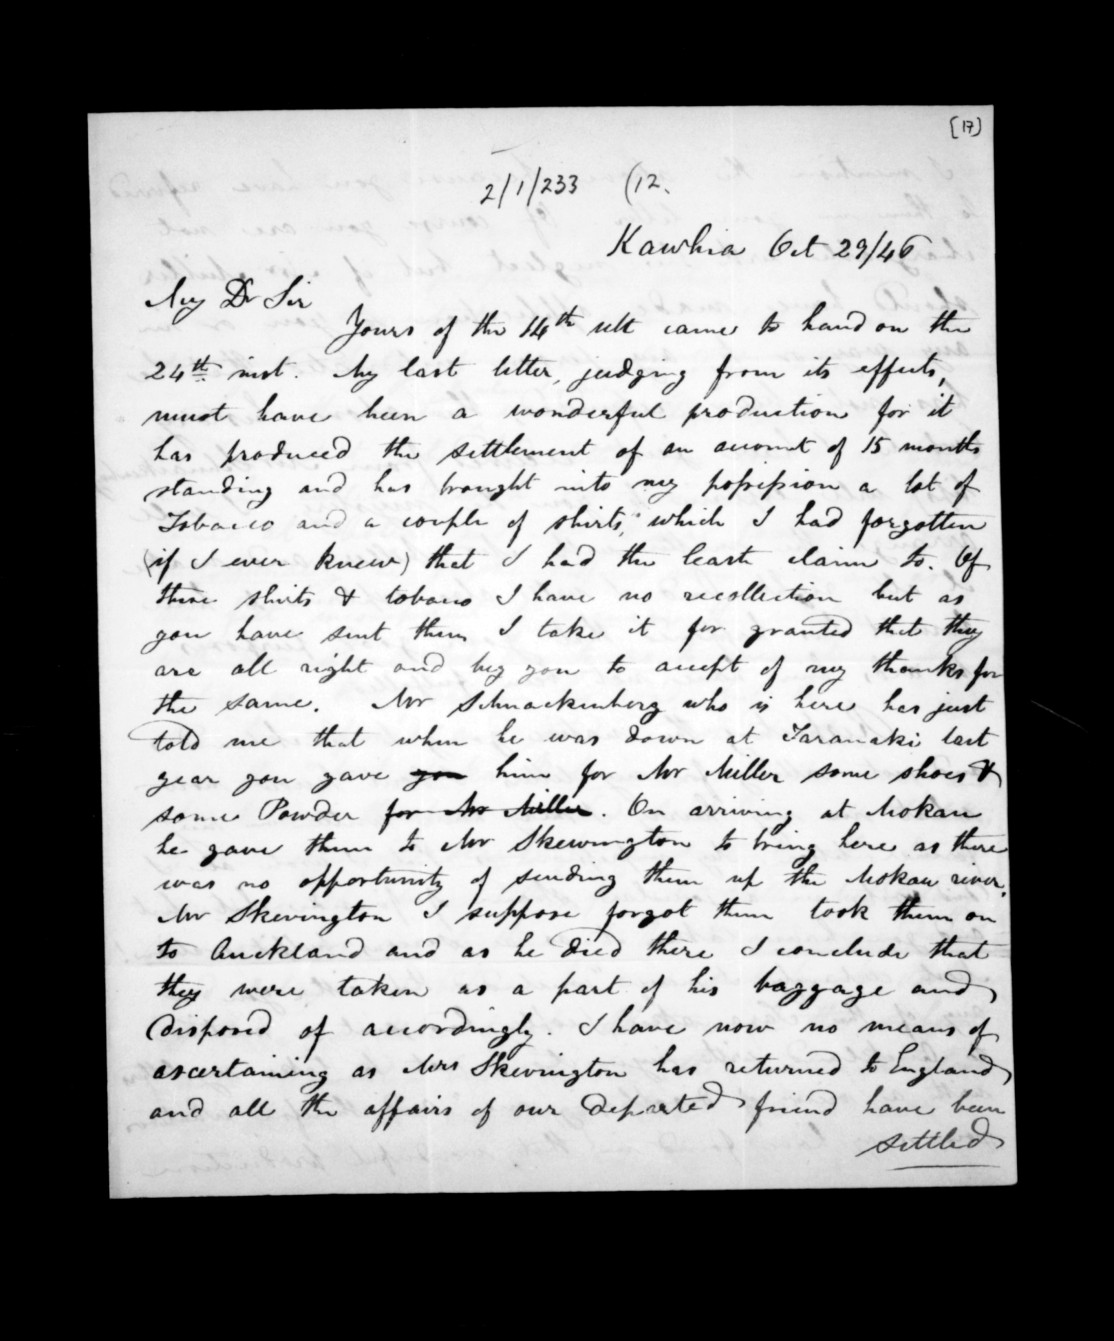 [17]
2/1/233 (12.
Kawhia Oct 29/46
My Dr Sir
Yours of the 14th ult came to hand on the
24th inst. My last letter, judging from its effects,
must have been a wonderful production for it
has produced the settlement of an account of 15 months
standing and has brought into my possession a lot of
Tobacco and a couple of shirts, which I had forgotten
(if I ever knew) that I had the least claim to. Of
these shirts & tobacco I have no recollection but as
you have sent them I take it for granted that they
are all right and beg you to accept of my thanks for
the same. Mr Schnackenberg who is here has just
told me that when he was down at Taranaki last
year you gave you him for Mr Miller some shoes &
some Powder for Mr Miller. On arriving at Mokau
he gave them to Mr Skewington to bring here as there
was no opportunity of sending them up the Mokau river.
Mr Skevington I suppose forgot them took them on
to Auckland and as he died there I conclude that
they were taken as a part of his baggage and
disposed of accordingly. I have now no means of
ascertaining as Mrs Skevington has returned to England
and all the affairs of our departed friend have been
settled